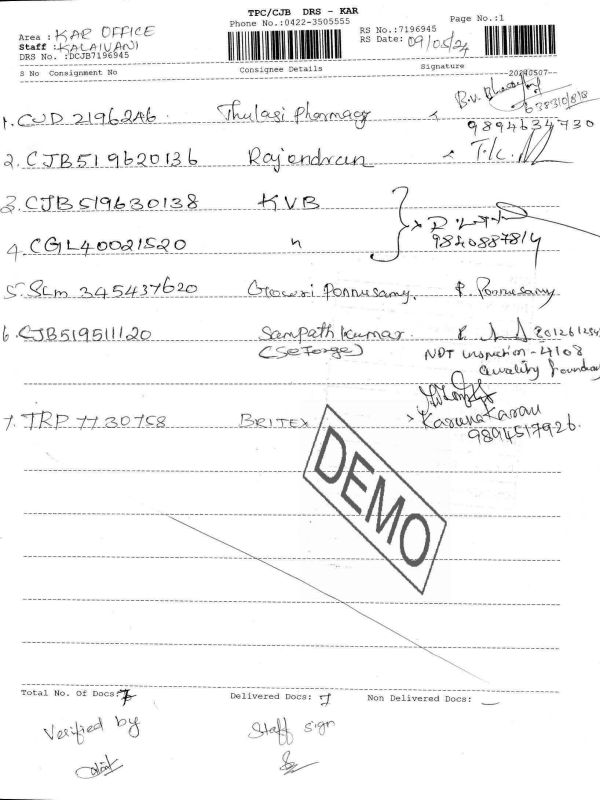 TPC/CJB DRS - KAR
Phone No.:0422-3505555
Page No.:1
Area : KAR OFFICE
RS No.:7196945
Staff : KALAIVANI
RS Date: 09/05/24
DRS No. :DCJB7196945
S No Consignment No Consignee Details Signature
20240507
638310818
1. CUD 2196246 Thulasi pharmacy
9894634730
2. CJB519620136 Rajendran T.K.
3. CJB 519630138 KVB
9840887814
4. CGL40021520 "
5. SLM 345437620 Gowri ponnusamy. P. Ponnusamy
6. CJB519511120 Sampath kumar
(SE Forge) NDT Inspection - 4108
Quality foundry
7. TRP 7730758 BRITEX Karunakaran
9894517926.
DEMO
Total No. Of Docs: 7 Delivered Docs: 7 Non Delivered Docs: -
Verified by Staff sign